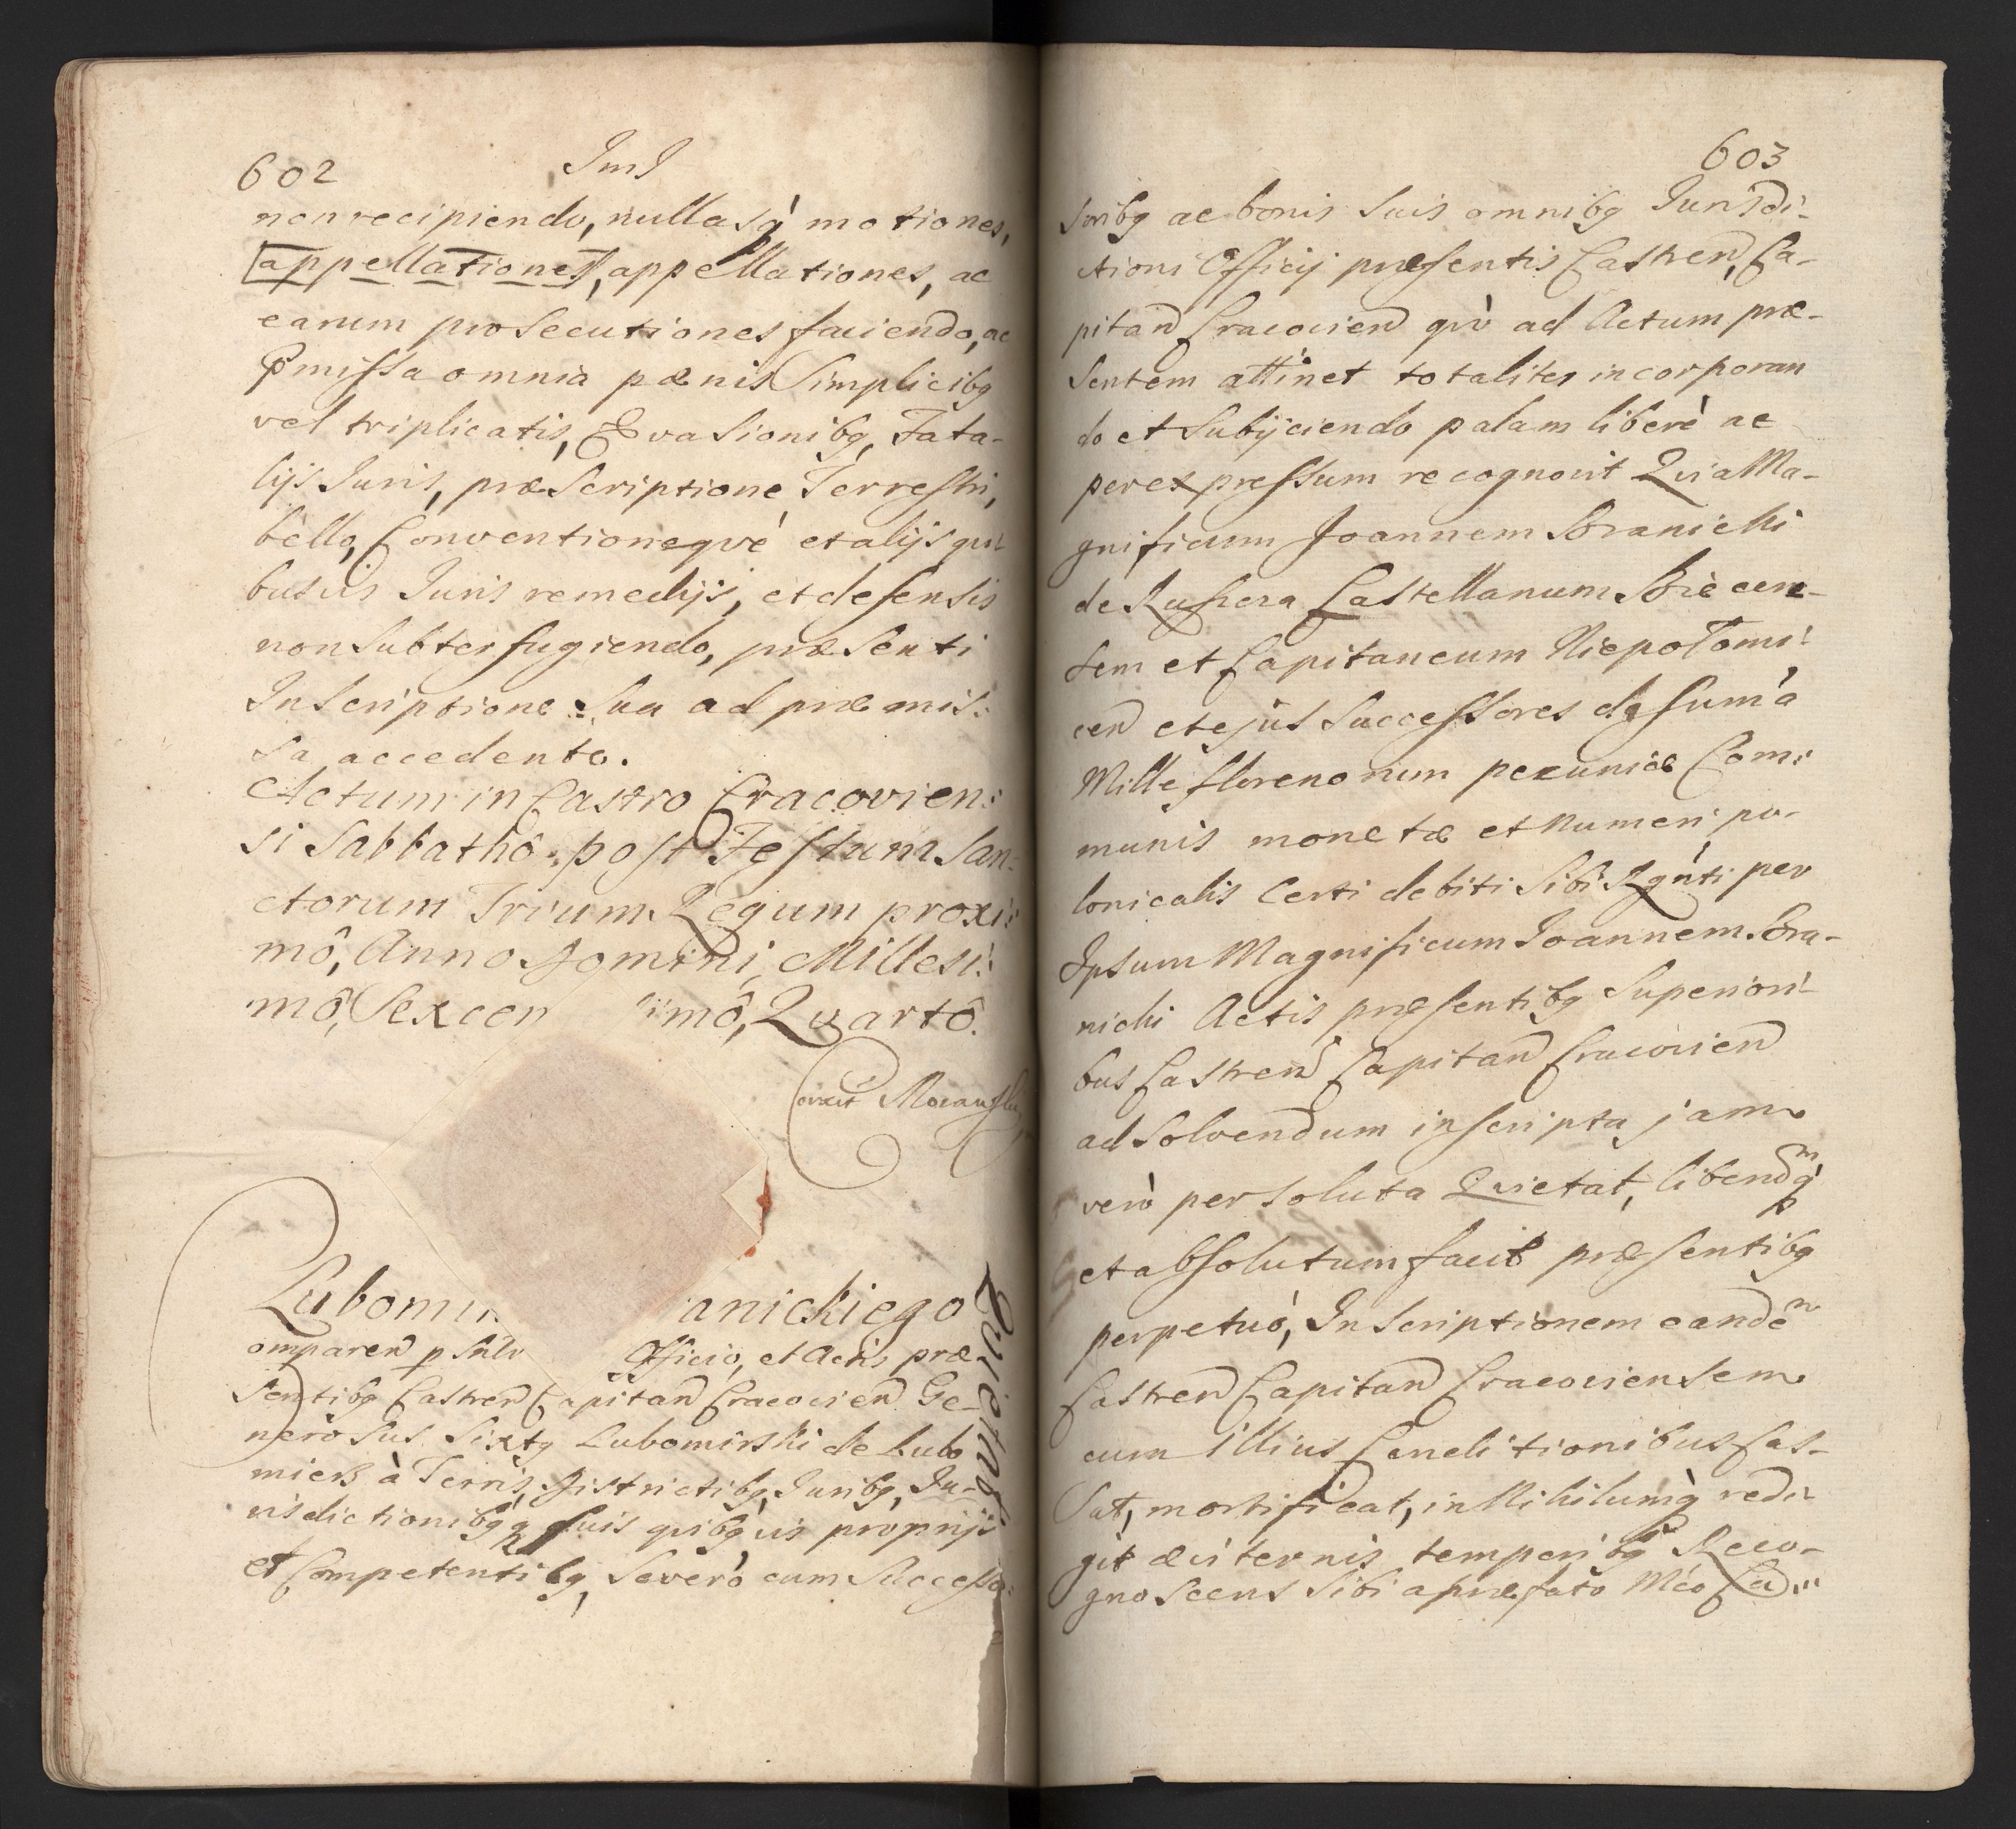 602 ImI
non recipiendo, nullasq̀ motiones,
appellationes, appellationes, ac
earum prosecutiones faciendo, ac
p̃missa omnia pænis Simplicibq
vel triplicatis, Evasionibq, Fata-
lijs Juris, præscriptione Terrestri,
bello, Conventioneqvè et alijs qui
busvis Juris remedijs, et defensis
non subterfugiendo, præsenti
Inscriptione sua ad præmis:
sa accedente.
Actum in Castro Cracovien:
si Sabbathô post Festum San-
ctorum Trium Regum proxi:
mô, Anno Domini, Millesi:
mô, Sexcen imô, Quartô.
Lubomir anickiego
Quietat
omparen p Officio, et Actis præ-
sentibq Castren Capitan Cracovien Ge-
nerosus Sixtq Lubomirski de Lubo
mierz à Terris, Districtibq, Juribq, Ju-
risdictionibqq suis qvibqvis proprijs
et Competentibq, Severò cum Successo:
603
ribq ac bonis suis omnibq Jurisdi-
ctioni Officij præsentis Castren, Ca-
pitan Cracovien qvò ad Actum præ-
sentem attinet totaliter incorporan
do et Subijciendo palam liberè ac
per expressum recognovit Qvia Ma-
gnificum Joannem Branichi
de Ruszcza Castellanum Biècen-
sem et Capitaneum Niepołomi:
cen et ejus Successores de suma
Mille florenorum pecuniæ Com:
munis monetæ et numeri po-
lonicalis Certi debiti sibi Rgnti per
Ipsum Magnificum Joannem Bra-
nichi Actis præsentibq Superiori-
bus Castren Capitan Cracovien
ad solvendum inscripta jam
verò persoluta Quietat, liberumq̀
et absolutum facit præsentibq
perpetuò, Inscriptionem eandem
Castren Capitan Cracoviensem
cum illius Conditionibus Cas-
sat, mortificat, in Nihilumq̀ redi-
git æviternis temporibq Reco-
gnoscens sibi a præfato Mco Ca: